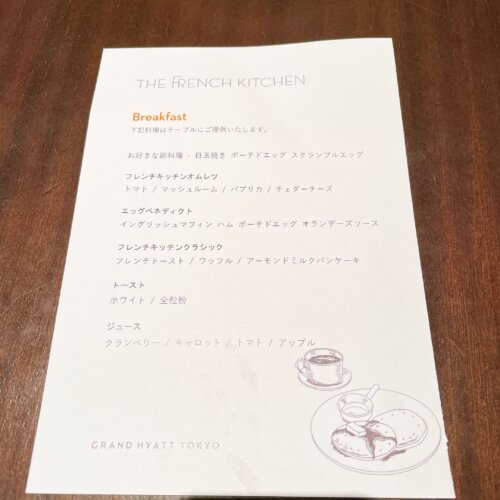 THE FRENCH KITCHEN
Breakfast
下記料理はテーブルにご提供いたします。
お好きな卵料理 - 目玉焼き ポーチドエッグ スクランブルエッグ
フレンチキッチンオムレツ
トマト / マッシュルーム / パプリカ / チェダーチーズ
エッグベネディクト
イングリッシュマフィン ハム ポーチドエッグ オランデーズソース
フレンチキッチンクラシック
フレンチトースト / ワッフル / アーモンドミルクパンケーキ
トースト
ホワイト / 全粒粉
ジュース
クランベリー / キャロット / トマト / アップル
GRAND HYATT TOKYO